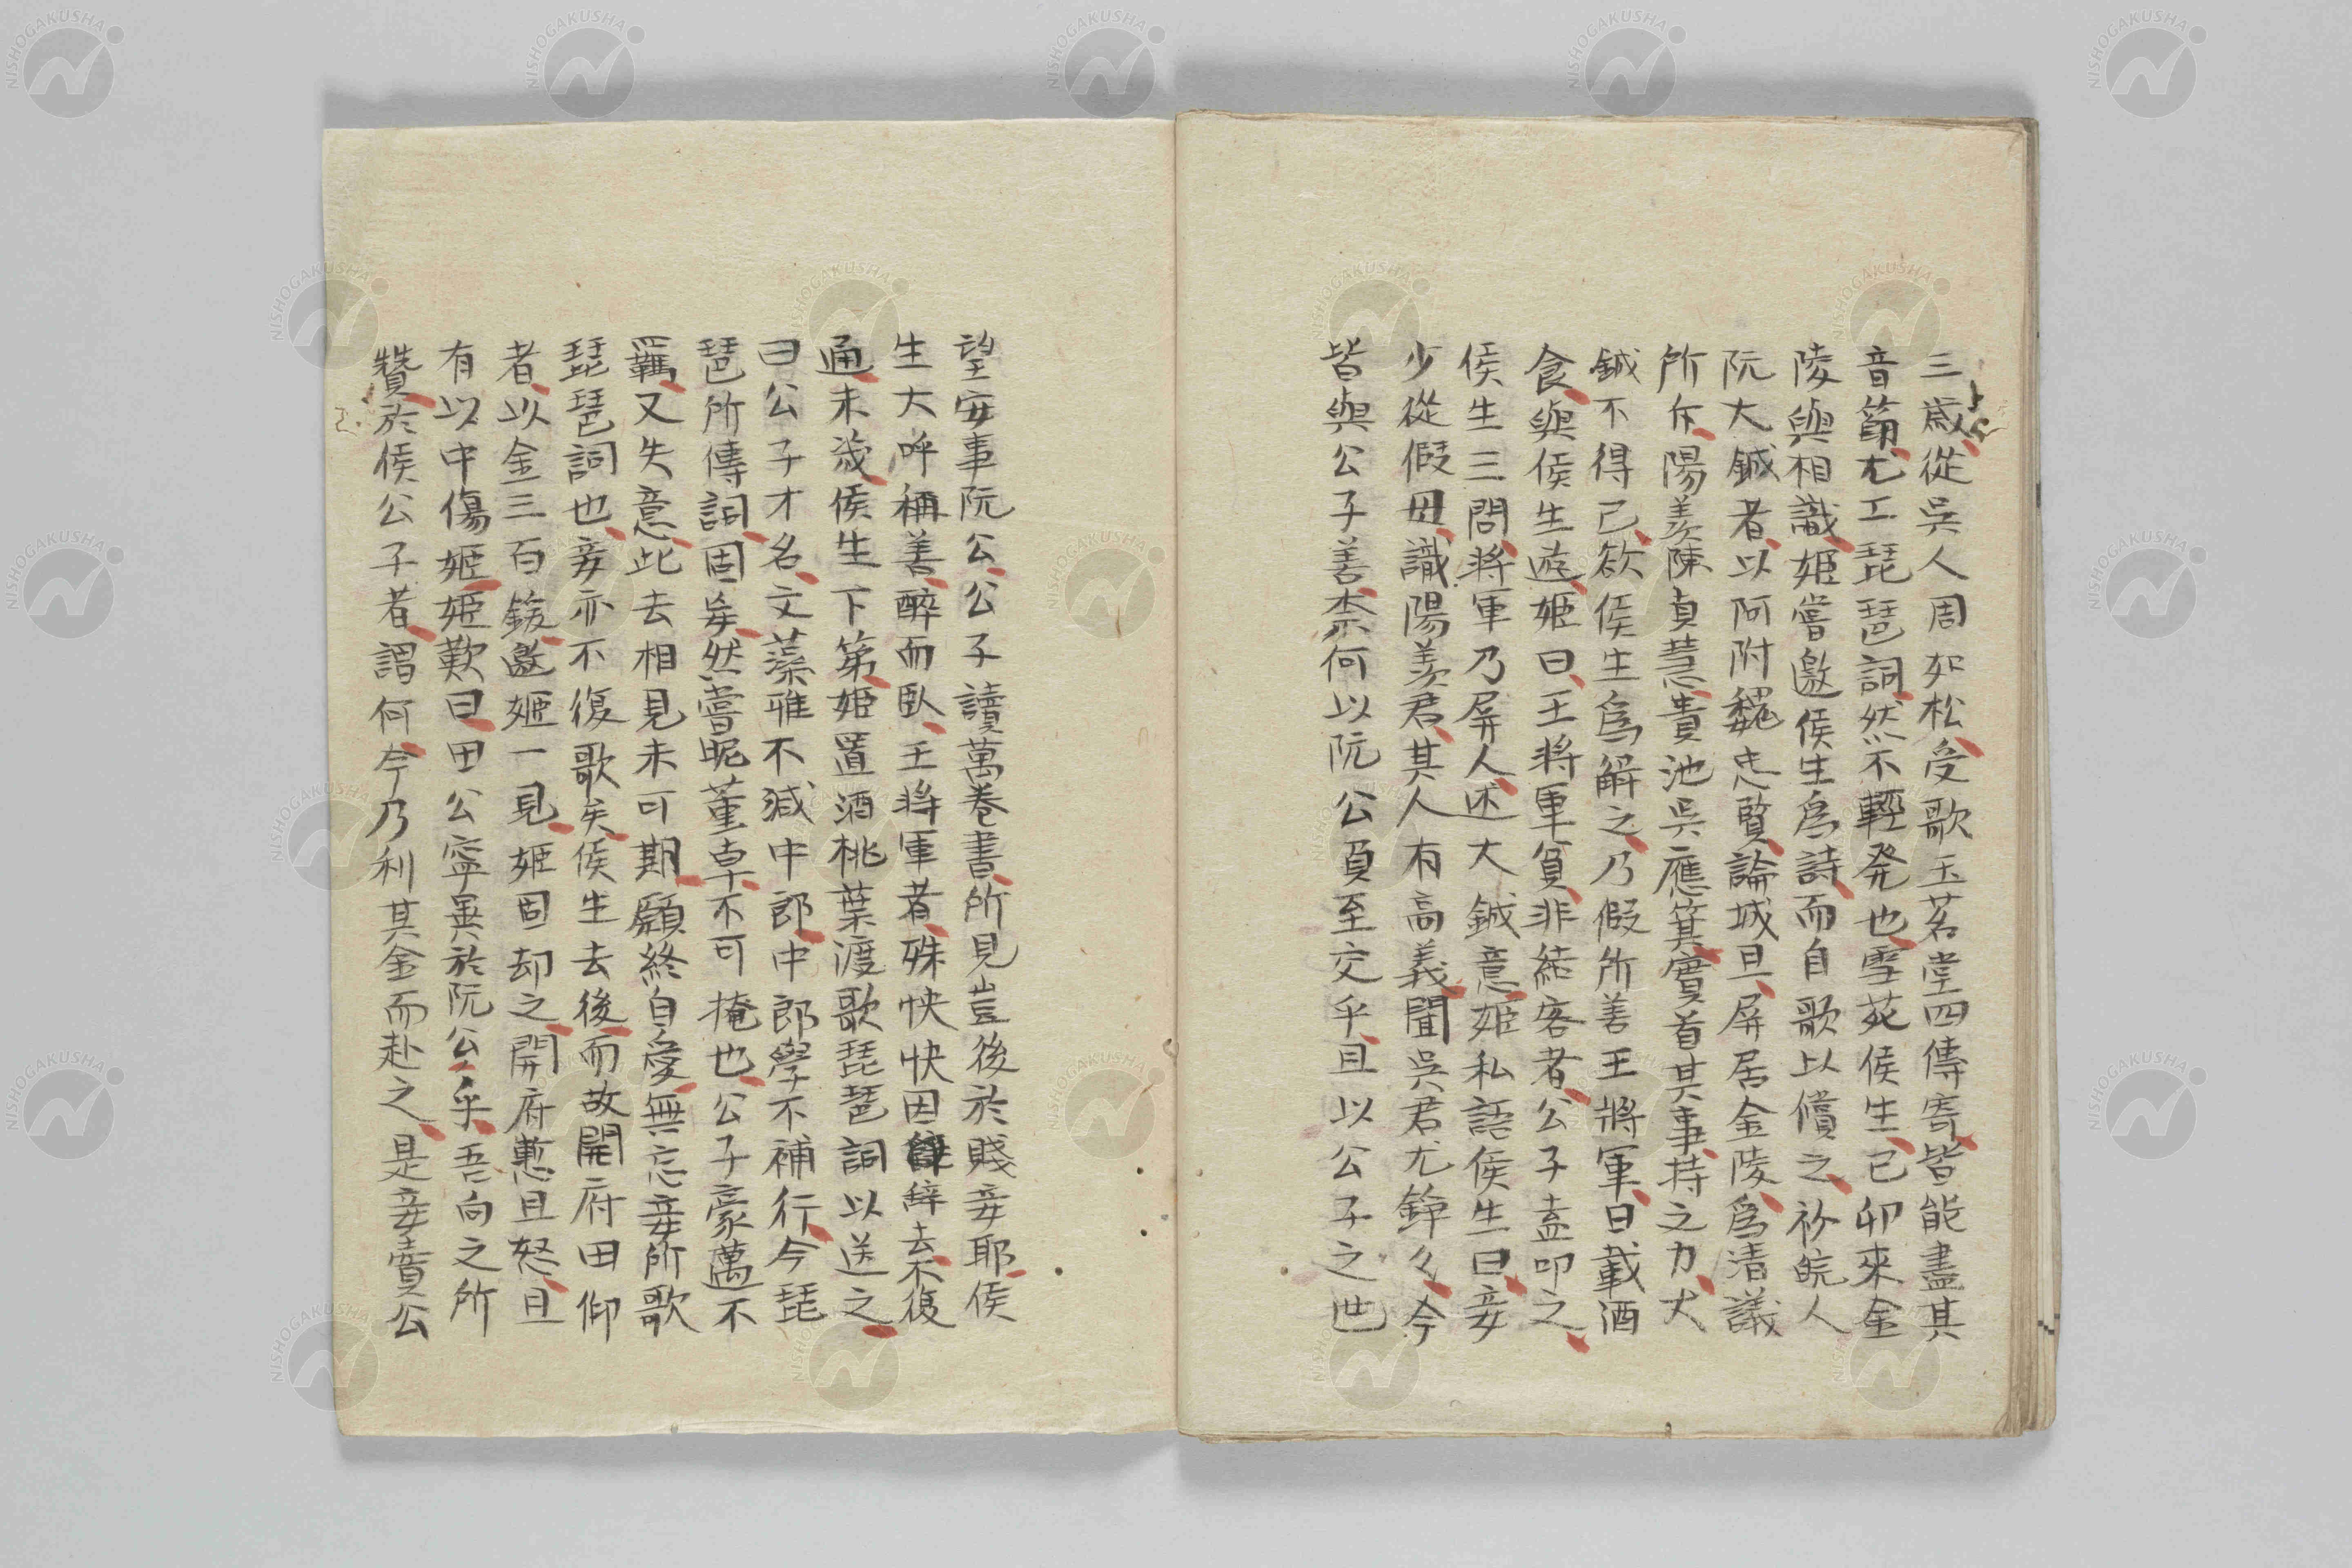 三歳從吳人周如松受歌玉茗堂四傳寄皆能盡其
音節尤工琵琶詞然不輕発也雪苑侯生己卯來金
陵與相識姬嘗邀侯生爲詩而自歌以償之初皖人
阮大鋮者以阿附魏忠賢論城旦屏居金陵爲清議
所斥陽羨陳貞慧貴池吳應箕實首其事持之力大
鋮不得已欲侯生爲解之乃假所善王將軍日載酒
食與侯生遊姬曰王將軍貧非結客者公子盍叩之
侯生三問將軍乃屏人述大鋮意姬私語侯生曰妾
少從假母識陽羨君其人有高義聞吳君尤錚々今
皆與公子善柰何以阮公負至交乎且以公子之世
望安事阮公公子讀萬卷書所見豈後於賤妾耶侯
生大呼稱善醉而臥王將軍者殊怏怏因辭去不復
通未幾侯生下第姬置酒桃葉渡歌琵琶詞以送之
曰公子才名文藻雅不減中郎中郎學不補行今琵
琶所傳詞固妄然嘗昵董卓不可掩也公子豪邁不
羈又失意此去相見未可期願終自愛無忘妾所歌
琵琶詞也妾亦不復歌矣侯生去後而故開府田仰
者以金三百鍰邀姬一見姬固却之開府慙且怒且
有以中傷姬姬歎曰田公寧異於阮公乎吾向之所
贊於侯公子者謂何今乃利其金而赴之是妾賣公
NISHOGAKUSHA